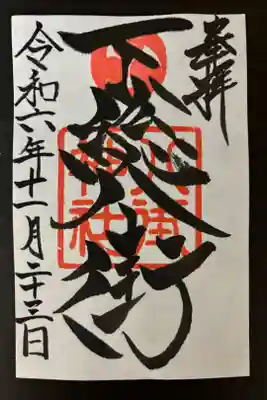 奉拝
下総八街
八街
神社
令和六年十一月二十三日